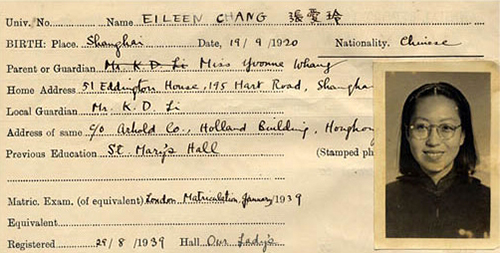 Univ. No. Name EILEEN CHANG 張愛玲
BIRTH: Place, Shanghai Date, 19/9/1920 Nationality. Chinese
Parent or Guardian Mr. K. D. Li Miss Yvonne Whang
Home Address 51 Eddington House, 195 Hart Road, Shangha
Local Guardian Mr. K. D. Li
Address of same c/o Arhold Co., Holland Building, Hongkong
Previous Education St. Mary's Hall (Stamped ph
Matric. Exam. (of equivalent) London Matriculation, January 1939
Equivalent
Registered 29/8/1939 Hall Our Lady's